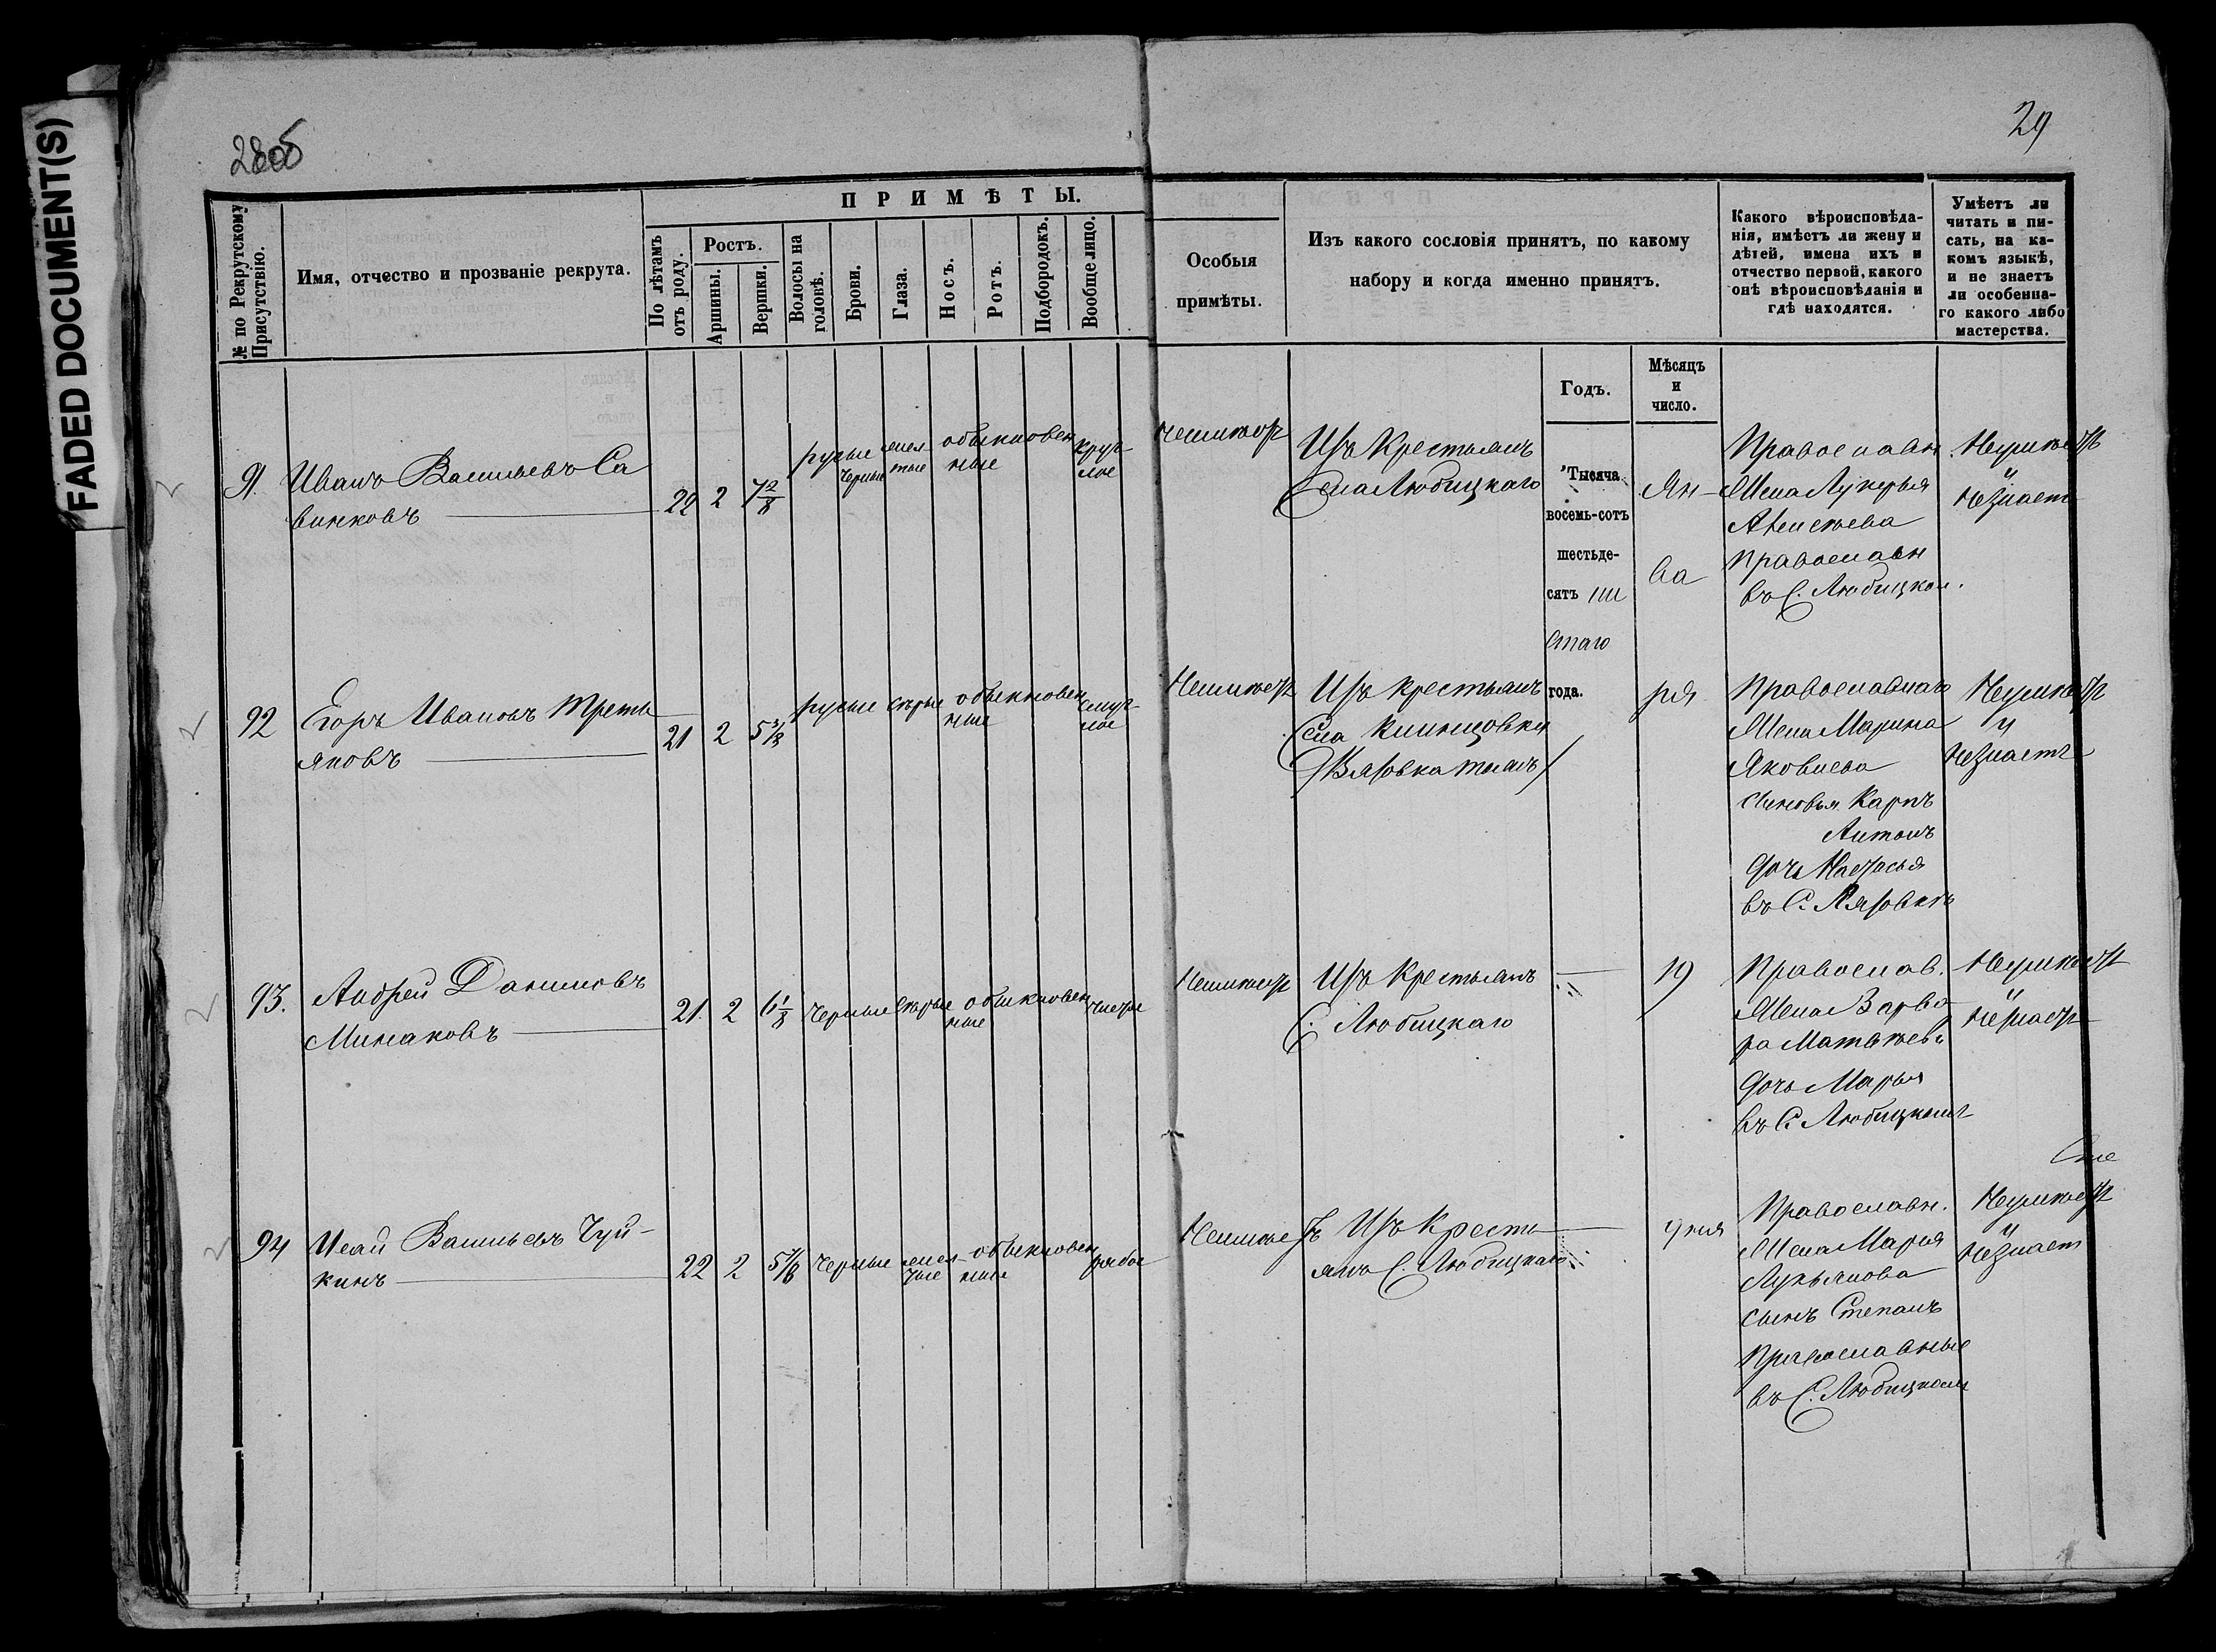 FADED DOCUMENT(S)
28об
29
ПРИМѢТЫ.
№ по Рекрутскому
Присутствію.
Имя, отчество и прозваніе рекрута.
По лѣтамъ
отъ роду.
Ростъ.
Аршины.
Вершки.
Волосы на
головѣ.
Брови.
Глаза.
Носъ.
Ротъ.
Подбородокъ.
Вообще лицо.
Особыя
примѣты.
Изъ какого сословія принятъ, по какому
набору и когда именно принятъ.
Какого вѣроисповѣда-
нія, имѣетъ ли жену и
дѣтей, имена ихъ и
отчество первой, какого
онѣ вѣроисповѣданія и
гдѣ находятся.
Умѣетъ ли
читать и пи-
сать, на ка-
комъ языкѣ,
и не знаетъ
ли особенна-
го какого либо
мастерства.
Годъ.
Мѣсяцъ
и
число.
Тысяча
восемь-сотъ
шестьде-
сятъ ше
стаго
года.
Ян-
ва
ря
91. Иванъ Васильевъ Са
винковъ
22 2 7 2/8
русые
черные
желтые
обыкновен
ные
круг-
лое
Неимѣетъ
Изъ Крестьянъ
Села Любицкаго
Православн.
Жена Лукерья
Алексѣева
Православн
въ С. Любицком.
Неумѣетъ
и
незнаетъ
92 Егоръ Ивановъ Треть
яковъ
21 2 5
русые сѣрые обыкновен
ные
смуг-
лое
Неимѣетъ
Изъ крестьянъ
Села Клинцовки
(Вязовка тожъ)
Православнаго
Жена Марина
Яковлева
сыновья Карпъ
Антонъ
дочь Настасья
въ С. Вязовкѣ
Неумѣетъ
и
незнаетъ
93. Андрей Даниловъ
Минаковъ
21. 2 6 1/8 черные сѣрые обыкновен
ные
чистое
Неимѣетъ
Изъ Крестьянъ
С. Любицкаго
19
Православ.
Жена Варва
ра Матвѣева
дочь Марья
въ С. Любицкомъ
Неумѣетъ
и
незнаетъ
94 Исай Васильевъ Чуй-
кинъ
22 2 5 черные жел-
тые
обыкновен
ные
рябое
Неимѣетъ
Изъ Кресть
янъ С. Любицкаго
дня
Православн.
Жена Марья
Лукьянова
сынъ Степанъ
Православные
въ С. Любицкомъ
Неумѣетъ
и
незнаетъ